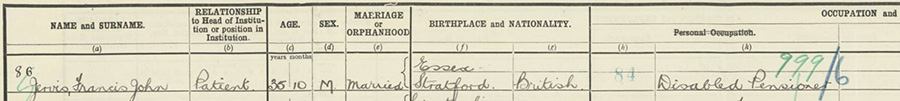 OCCUPATION and
NAME and SURNAME.
RELATIONSHIP
to Head of Institu-
tion or position in
Institution.
AGE.
SEX.
MARRIAGE
or
ORPHANHOOD
BIRTHPLACE and NATIONALITY.
Personal Occupation.
(a) (b) (c) (d) (e) (f) (g) (h) (k)
years months
86 Essex 999/6
Jervis, Francis John Patient 35 10 M. Married Stratford. British 84 Disabled Pensioner